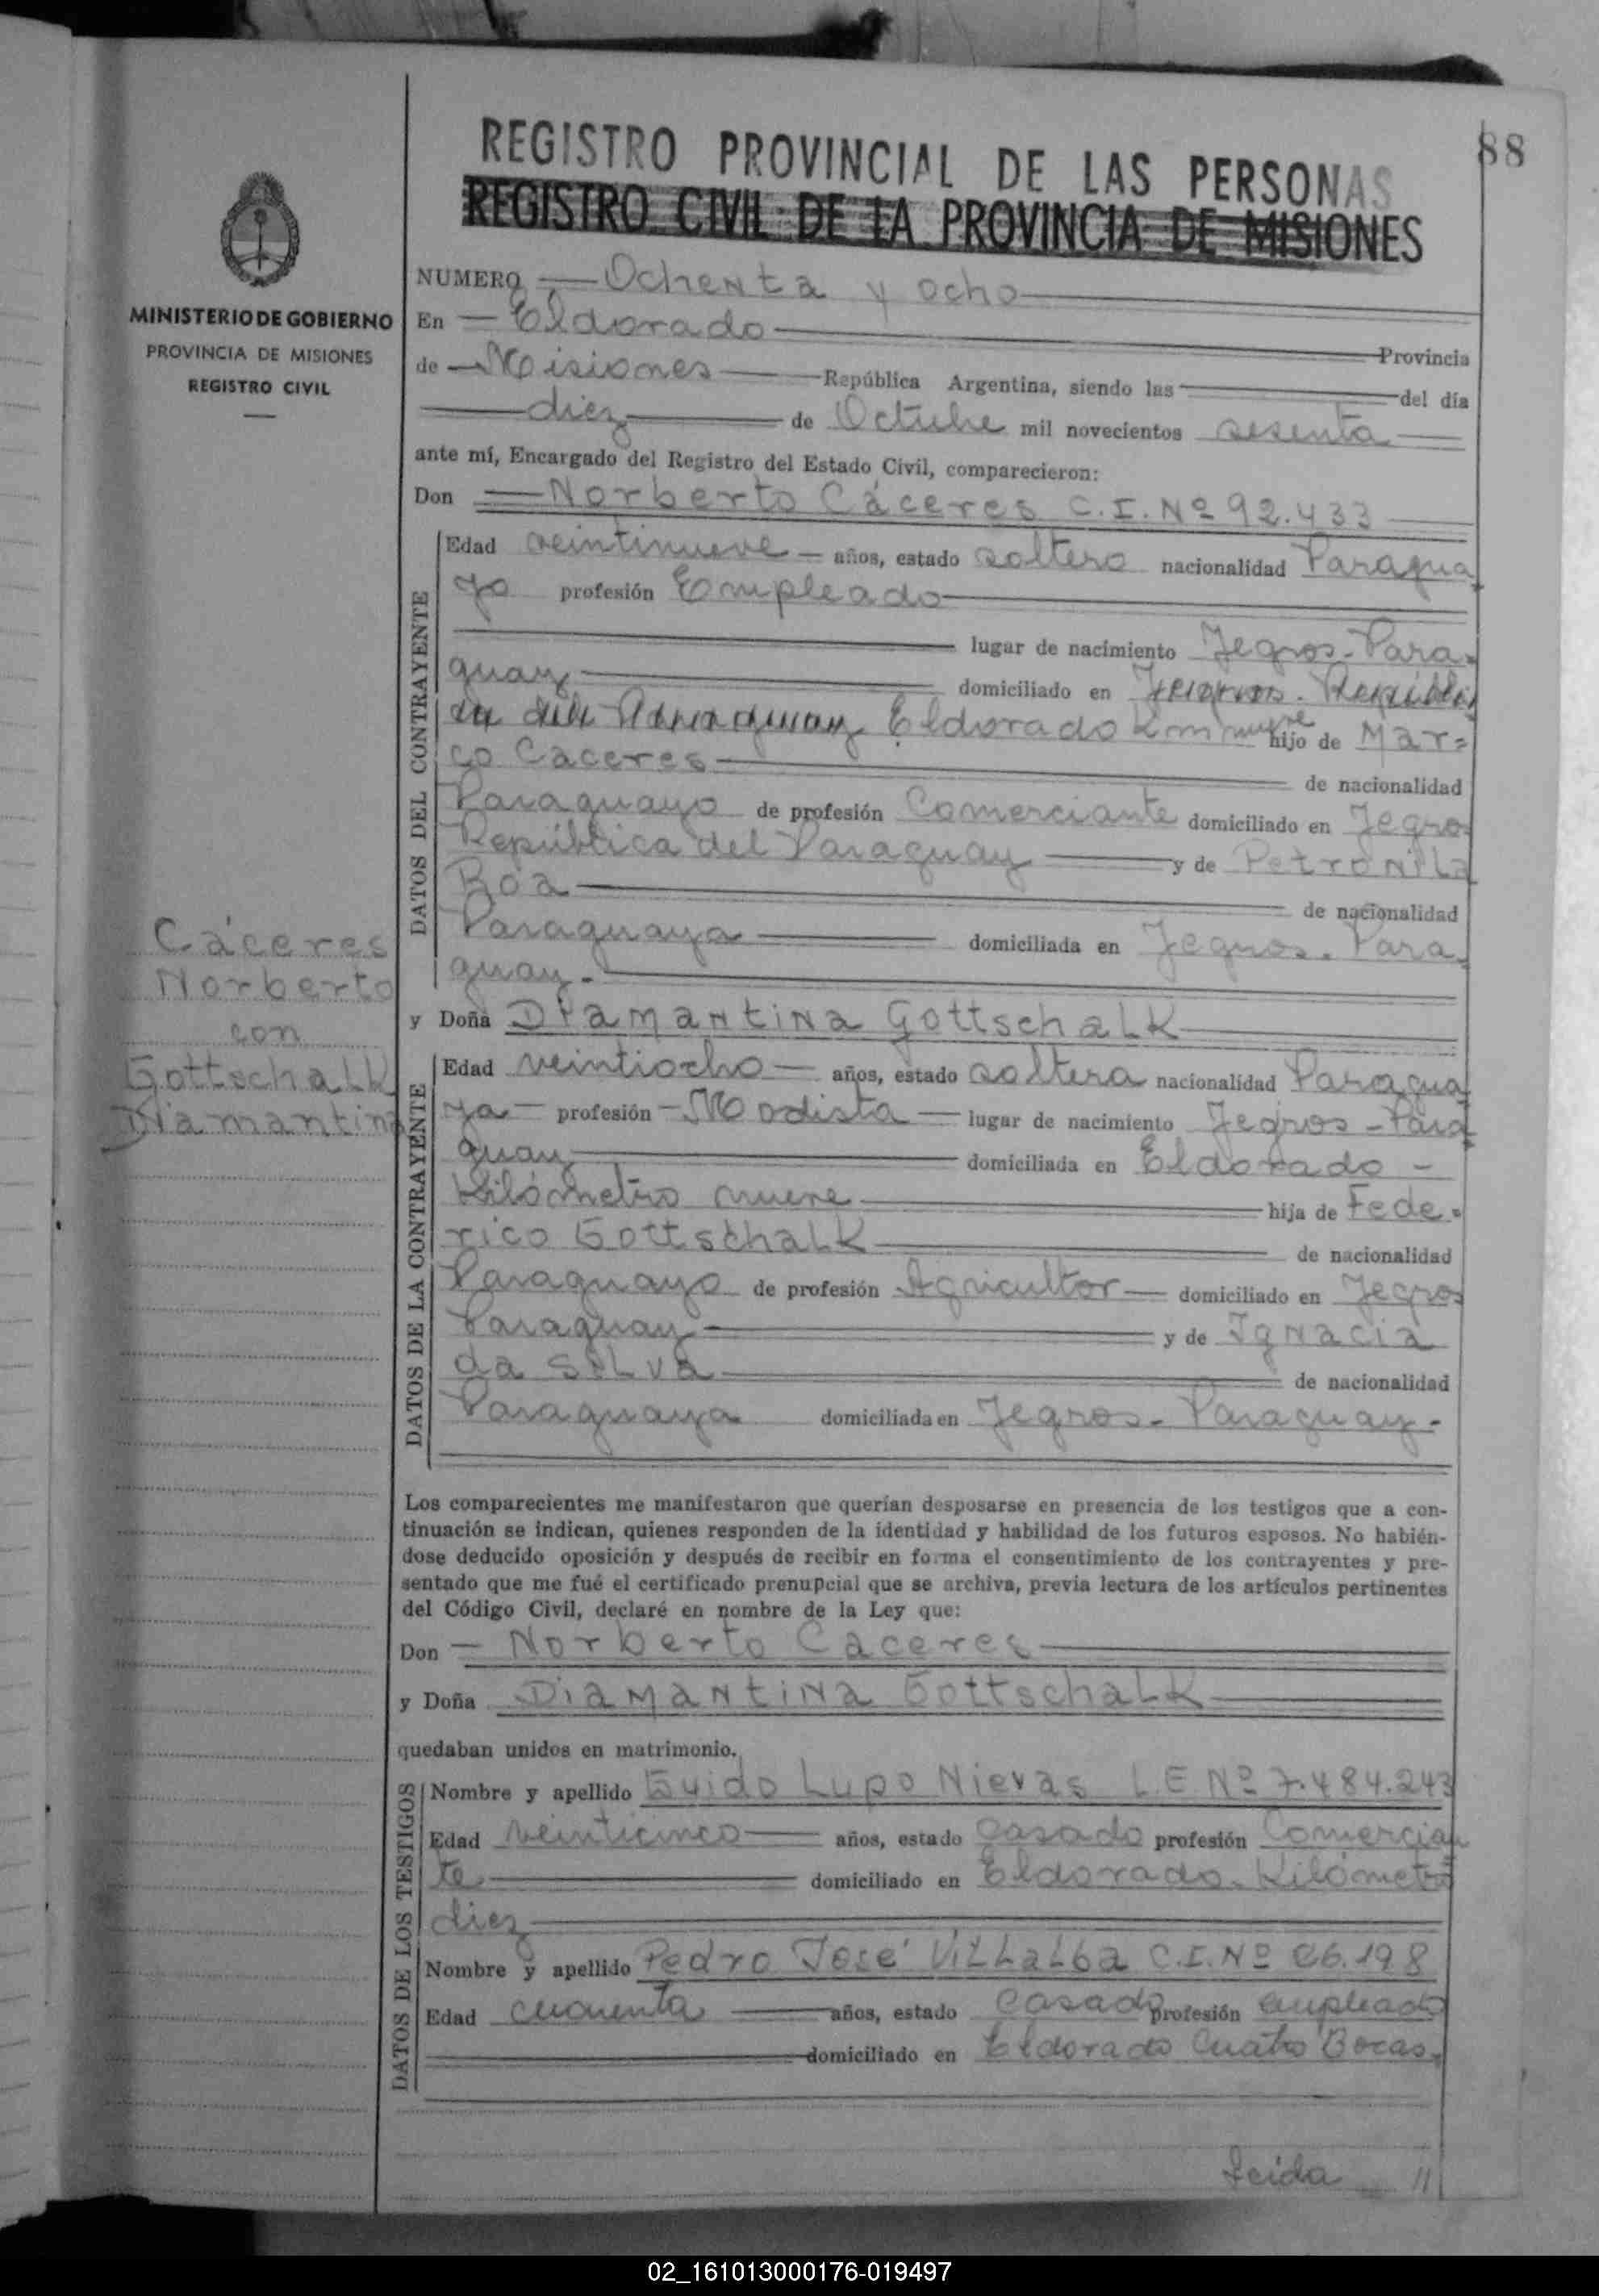 88
REGISTRO PROVINCIAL DE LAS PERSONAS
REGISTRO CIVIL DE LA PROVINCIA DE MISIONES
MINISTERIO DE GOBIERNO
PROVINCIA DE MISIONES
REGISTRO CIVIL
Cáceres
Norberto
con
Gottschalk
Diamantina
NUMERO Ochenta y ocho
En Eldorado Provincia
de Misiones República Argentina, siendo las del día
diez de Octubre mil novecientos sesenta
ante mí, Encargado del Registro del Estado Civil, comparecieron:
Don Norberto Cáceres C.I. Nº 92.433
DATOS DEL CONTRAYENTE
Edad veintinueve años, estado soltero nacionalidad Paragua
yo profesión Empleado
lugar de nacimiento Yegros - Para-
guay domiciliado en Yegros - Repúbli
ca del Paraguay Eldorado Km nueve hijo de Mar=
co Caceres de nacionalidad
Paraguayo de profesión Comerciante domiciliado en Yegros
República del Paraguay y de Petronila
Roa de nacionalidad
Paraguaya domiciliada en Yegros - Para
guay.
y Doña Diamantina Gottschalk
DATOS DE LA CONTRAYENTE
Edad veintiocho años, estado soltera nacionalidad Paragua
ya profesión Modista lugar de nacimiento Yegros - Para
guay domiciliada en Eldorado -
Kilómetro nueve hija de Fede-
rico Gottschalk de nacionalidad
Paraguayo de profesión Agricultor domiciliado en Yegros
Paraguay y de Ignacia
da Silva de nacionalidad
Paraguaya domiciliada en Yegros - Paraguay -
Los comparecientes me manifestaron que querían desposarse en presencia de los testigos que a con-
tinuación se indican, quienes responden de la identidad y habilidad de los futuros esposos. No habién-
dose deducido oposición y después de recibir en forma el consentimiento de los contrayentes y pre-
sentado que me fué el certificado prenupcial que se archiva, previa lectura de los artículos pertinentes
del Código Civil, declaré en nombre de la Ley que:
Don Norberto Caceres
y Doña Diamantina Gottschalk
quedaban unidos en matrimonio.
DATOS DE LOS TESTIGOS
Nombre y apellido Guido Lupo Nievas L.E Nº 7.484.243
Edad veinticinco años, estado casado profesión Comercian
te domiciliado en Eldorado - Kilómetro
diez
Nombre y apellido Pedro José Villalba C.I. Nº 86.198
Edad cuarenta años, estado casado profesión empleado
domiciliado en Eldorado Cuatro Bocas.
Leida //
02_161013000176-019497